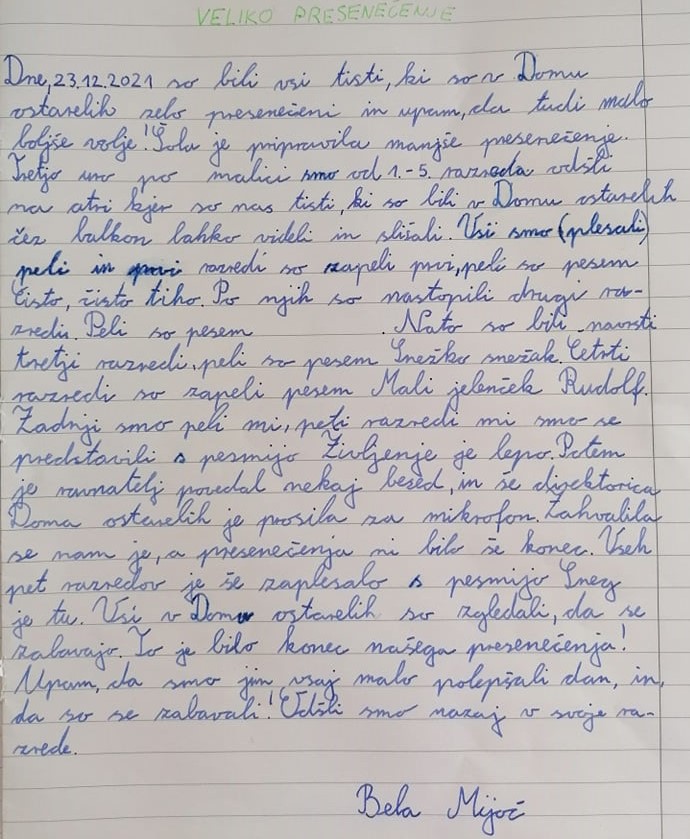 VELIKO PRESENEČENJE
Dne, 23.12.2021 so bili vsi tisti, ki so v Domu
ostarelih zelo presenečeni in upam, da tudi malo
boljše volje! Šola je pripravila manjše presenečenje.
Tretjo uro po malici smo od 1.-5. razreda odšli
na atri kjer so nas tisti, ki so bili v Domu ostarelih
čez balkon lahko videli in slišali. Vsi smo (plesali)
peli in prvi razredi so zapeli prvi, peli so pesem
Čisto, čisto tiho. Po njih so nastopili drugi ra-
zredi. Peli so pesem . Nato so bili navrsti
tretji razredi, peli so pesem Snežko snežak. Četrti
razredi so zapeli pesem Mali jelenček Rudolf.
Zadnji smo peli mi, peti razredi mi smo se
predstavili s pesmijo Življenje je lepo. Potem
je ravnatelj povedal nekaj besed, in še direktorica
Doma ostarelih je prosila za mikrofon. Zahvalila
se nam je, a presenečenja ni bilo še konec. Vseh
pet razredov je še zaplesalo s pesmijo Sneg
je tu. Vsi v Domu ostarelih so zgledali, da se
zabavajo. To je bilo konec našega presenečenja!
Upam, da smo jim vsaj malo polepšali dan, in,
da so se zabavali! Odšli smo nazaj v svoje ra-
zrede.
Bela Mijoč